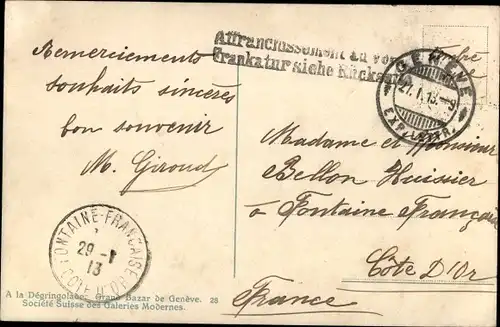 Remerciements
souhaits sincères
bon souvenir
M. Giroud
Affranchissement au verso
Frankatur siehe Rückseite
GENÈVE
27.I.13.-9
EXP. LETTR.
Madame et Monsieur
Bellon Huissier
à Fontaine Française
Côte D'Or
France
FONTAINE-FRANÇAISE
29 -1
13
CÔTE D'OR
A la Dégringolade: Grand Bazar de Genève. 28
Société Suisse des Galeries Modernes.